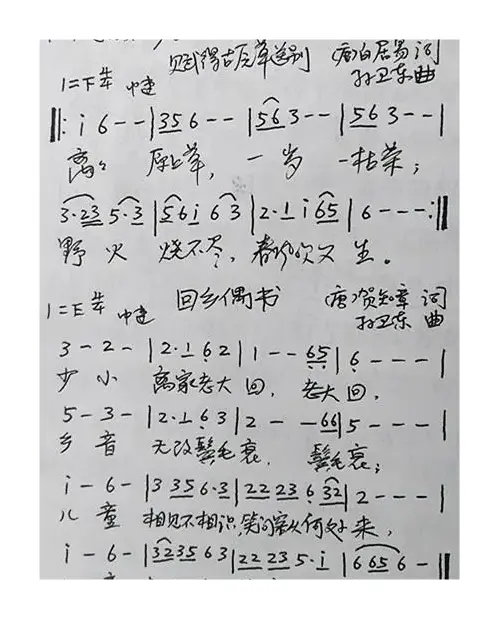 赋得古原草送别 (唐)白居易 词
1=F 4/4 中速 孙卫东 曲
‖: i 6 - - | 3 5 6 - - | 5 6 3 - - | 5 6 3 - - |
离离 原上草, 一岁 一枯荣;
3·23 5·3 | 56i 63 | 2·1 i65 | 6 - - - :‖
野火 烧不尽, 春风吹又生。
回乡偶书 (唐)贺知章 词
1=E 4/4 中速 孙卫东 曲
3 - 2 - | 2·1 6 2 | 1 - - 65 | 6 - - - |
少小 离家老大回, 老大回,
5 - 3 - | 2·1 6 3 | 2 - - 66 | 5 - - - |
乡音 无改鬓毛衰, 鬓毛衰;
i - 6 - | 3 35 6·3 | 22 23 6 32 | 2 - - - |
儿童 相见不相识,笑问客从何处来,
i - 6 - | 3235 6 3 | 22 23 5·i | 6 65 6 - ‖